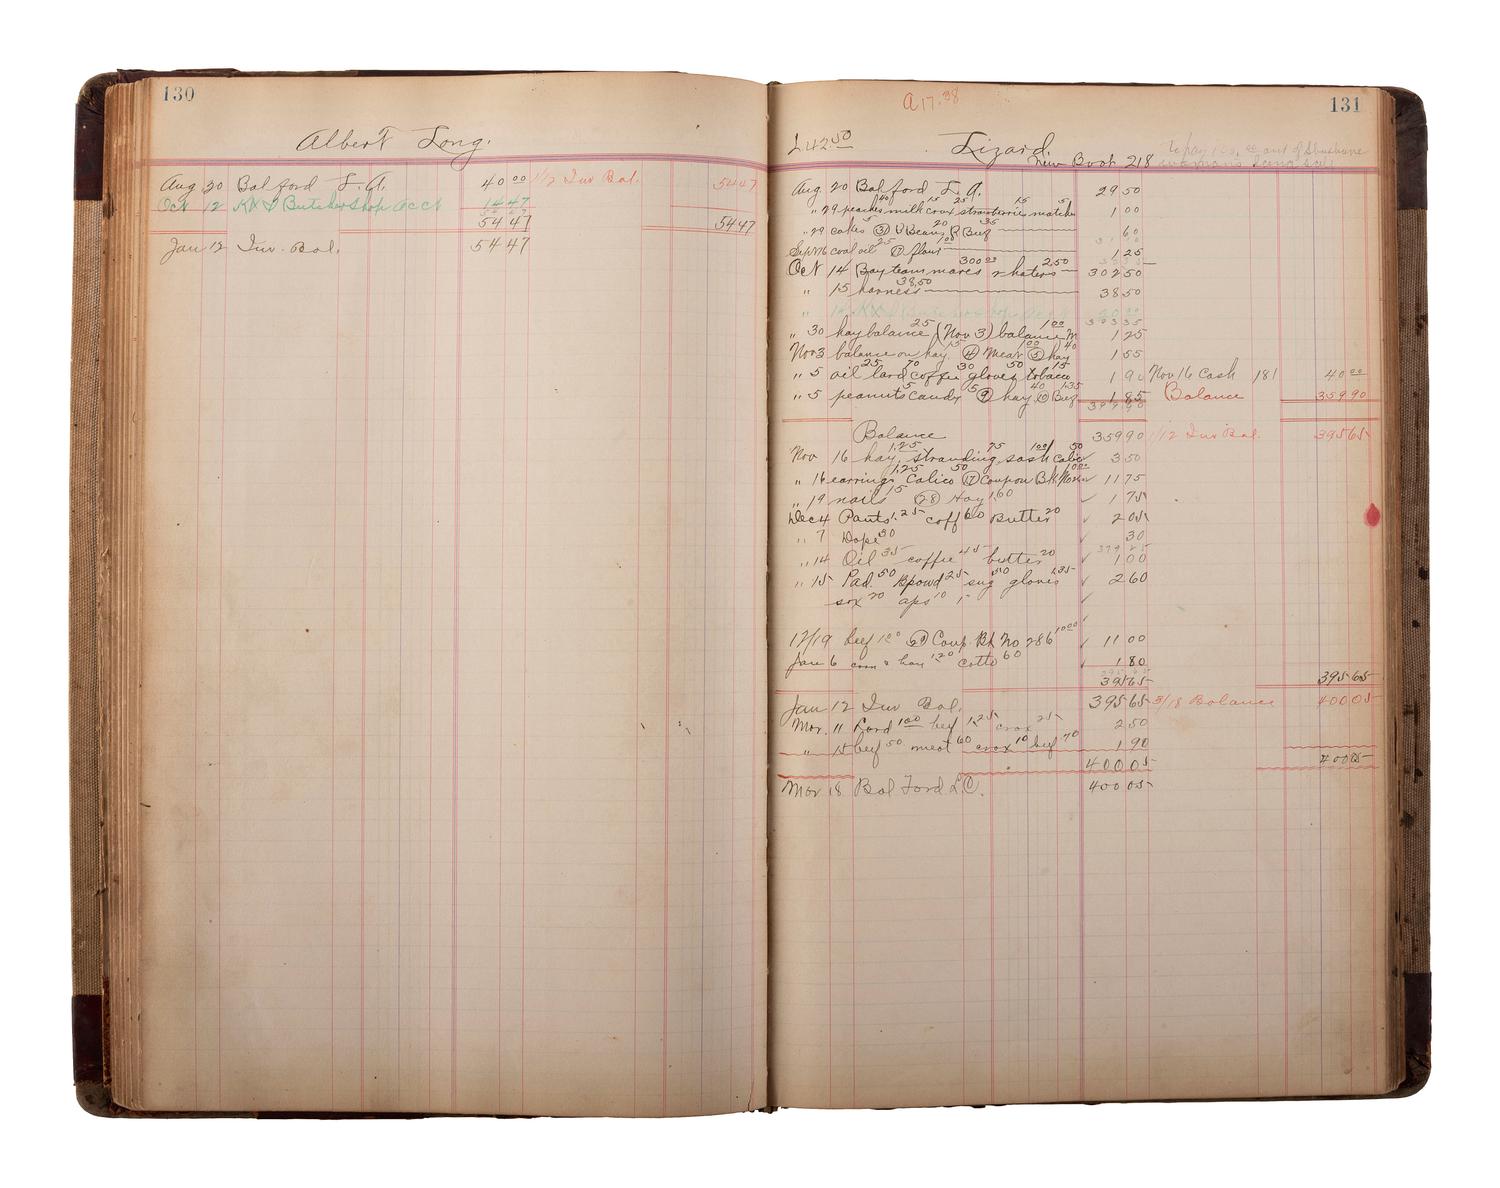 130
Albert Long.
Aug 20 Bal ford L.A. 40 00 1/12 Inv Bal. 54 47
Oct 12 KX & Butcher Shop acct 14 47
54 47 54 47
Jan 12 Inv. Bal. 54 47
A 17.38
131
L 42.50 Lizard.
New Book 218
Aug. 20 Bal ford L.A. 29 50
" 29 peaches 40 milk 15 crax 25 strawberries 15 matches 5 1 00
" 29 cakes 5 (31) P Beans 20 R Beef 35 60
Sept 16 coal oil 25 (17) flour 1.00 1 25
Oct 14 Bay team mares 300.00 & halters 2.50 302 50
" 15 harness 38.50 38 50
" 30 hay balance 25 (Nov 3) balance 1.00 1 25
Nov 3 balance on hay 15 (4) meat 1.00 (5) hay 40 1 55
" 5 oil 25 lard 70 coffee 30 gloves 50 tobacco 15 1 90 Nov 16 Cash 181 40 00
" 5 peanuts 5 candy 5 (9) hay 40 (10) Beef 1.35 1 85 Balance 359 90
399 90
Balance 359 90 1/12 Inv Bal. 395 65
Nov 16 hay 1.25 75 sash 1.00 50 3 50
" 16 earrings 1.25 Calico 50 (17) Coupon Bk 10.00 11 75
" 19 nails 15 (28) Hay 1.60 1 75
Dec 4 Pants 1.25 coff 60 Butter 20 2 05
" 7 Dope 30 30
" 14 Oil 35 coffee 45 butter 20 1 00
" 15 Pad. 50 Bpowd 25 sug 50 gloves 1.35 2 60
sox 20 aps 10
12/19 beef 1.00 (21) Coup. Bk No 286 10.00 11 00
Jan 6 corn & hay 1.20 cotto 60 1 80
395 65 395 65
Jan 12 Inv Bal. 395 65 3/18 Balance 400 05
Mar. 11 Lard 1.00 beef 1.25 crax 25 2 50
" 15 beef 50 meat 60 crax 10 beef 70 1 90
400 05 400 05
Mar 18 Bal Ford L.C. 400 05